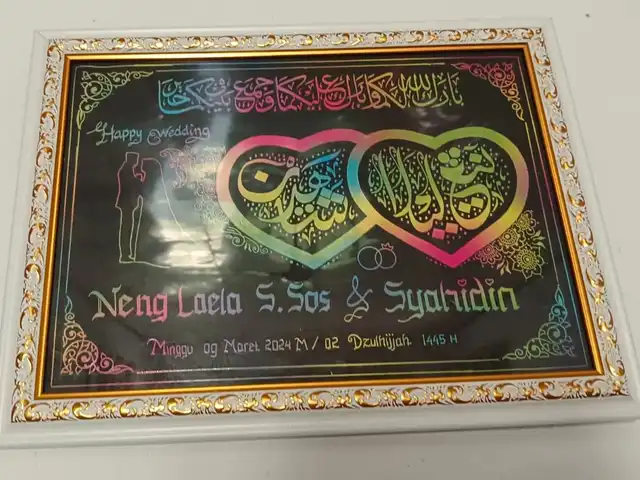 بارك الله لكما وبارك عليكما وجمع بينكما في خير
Happy Wedding
شاهدين نيڠ ليلا
Neng Laela S.Sos & Syahidin
Minggu 09 Maret 2024 M / 02 Dzulhijjah 1445 H